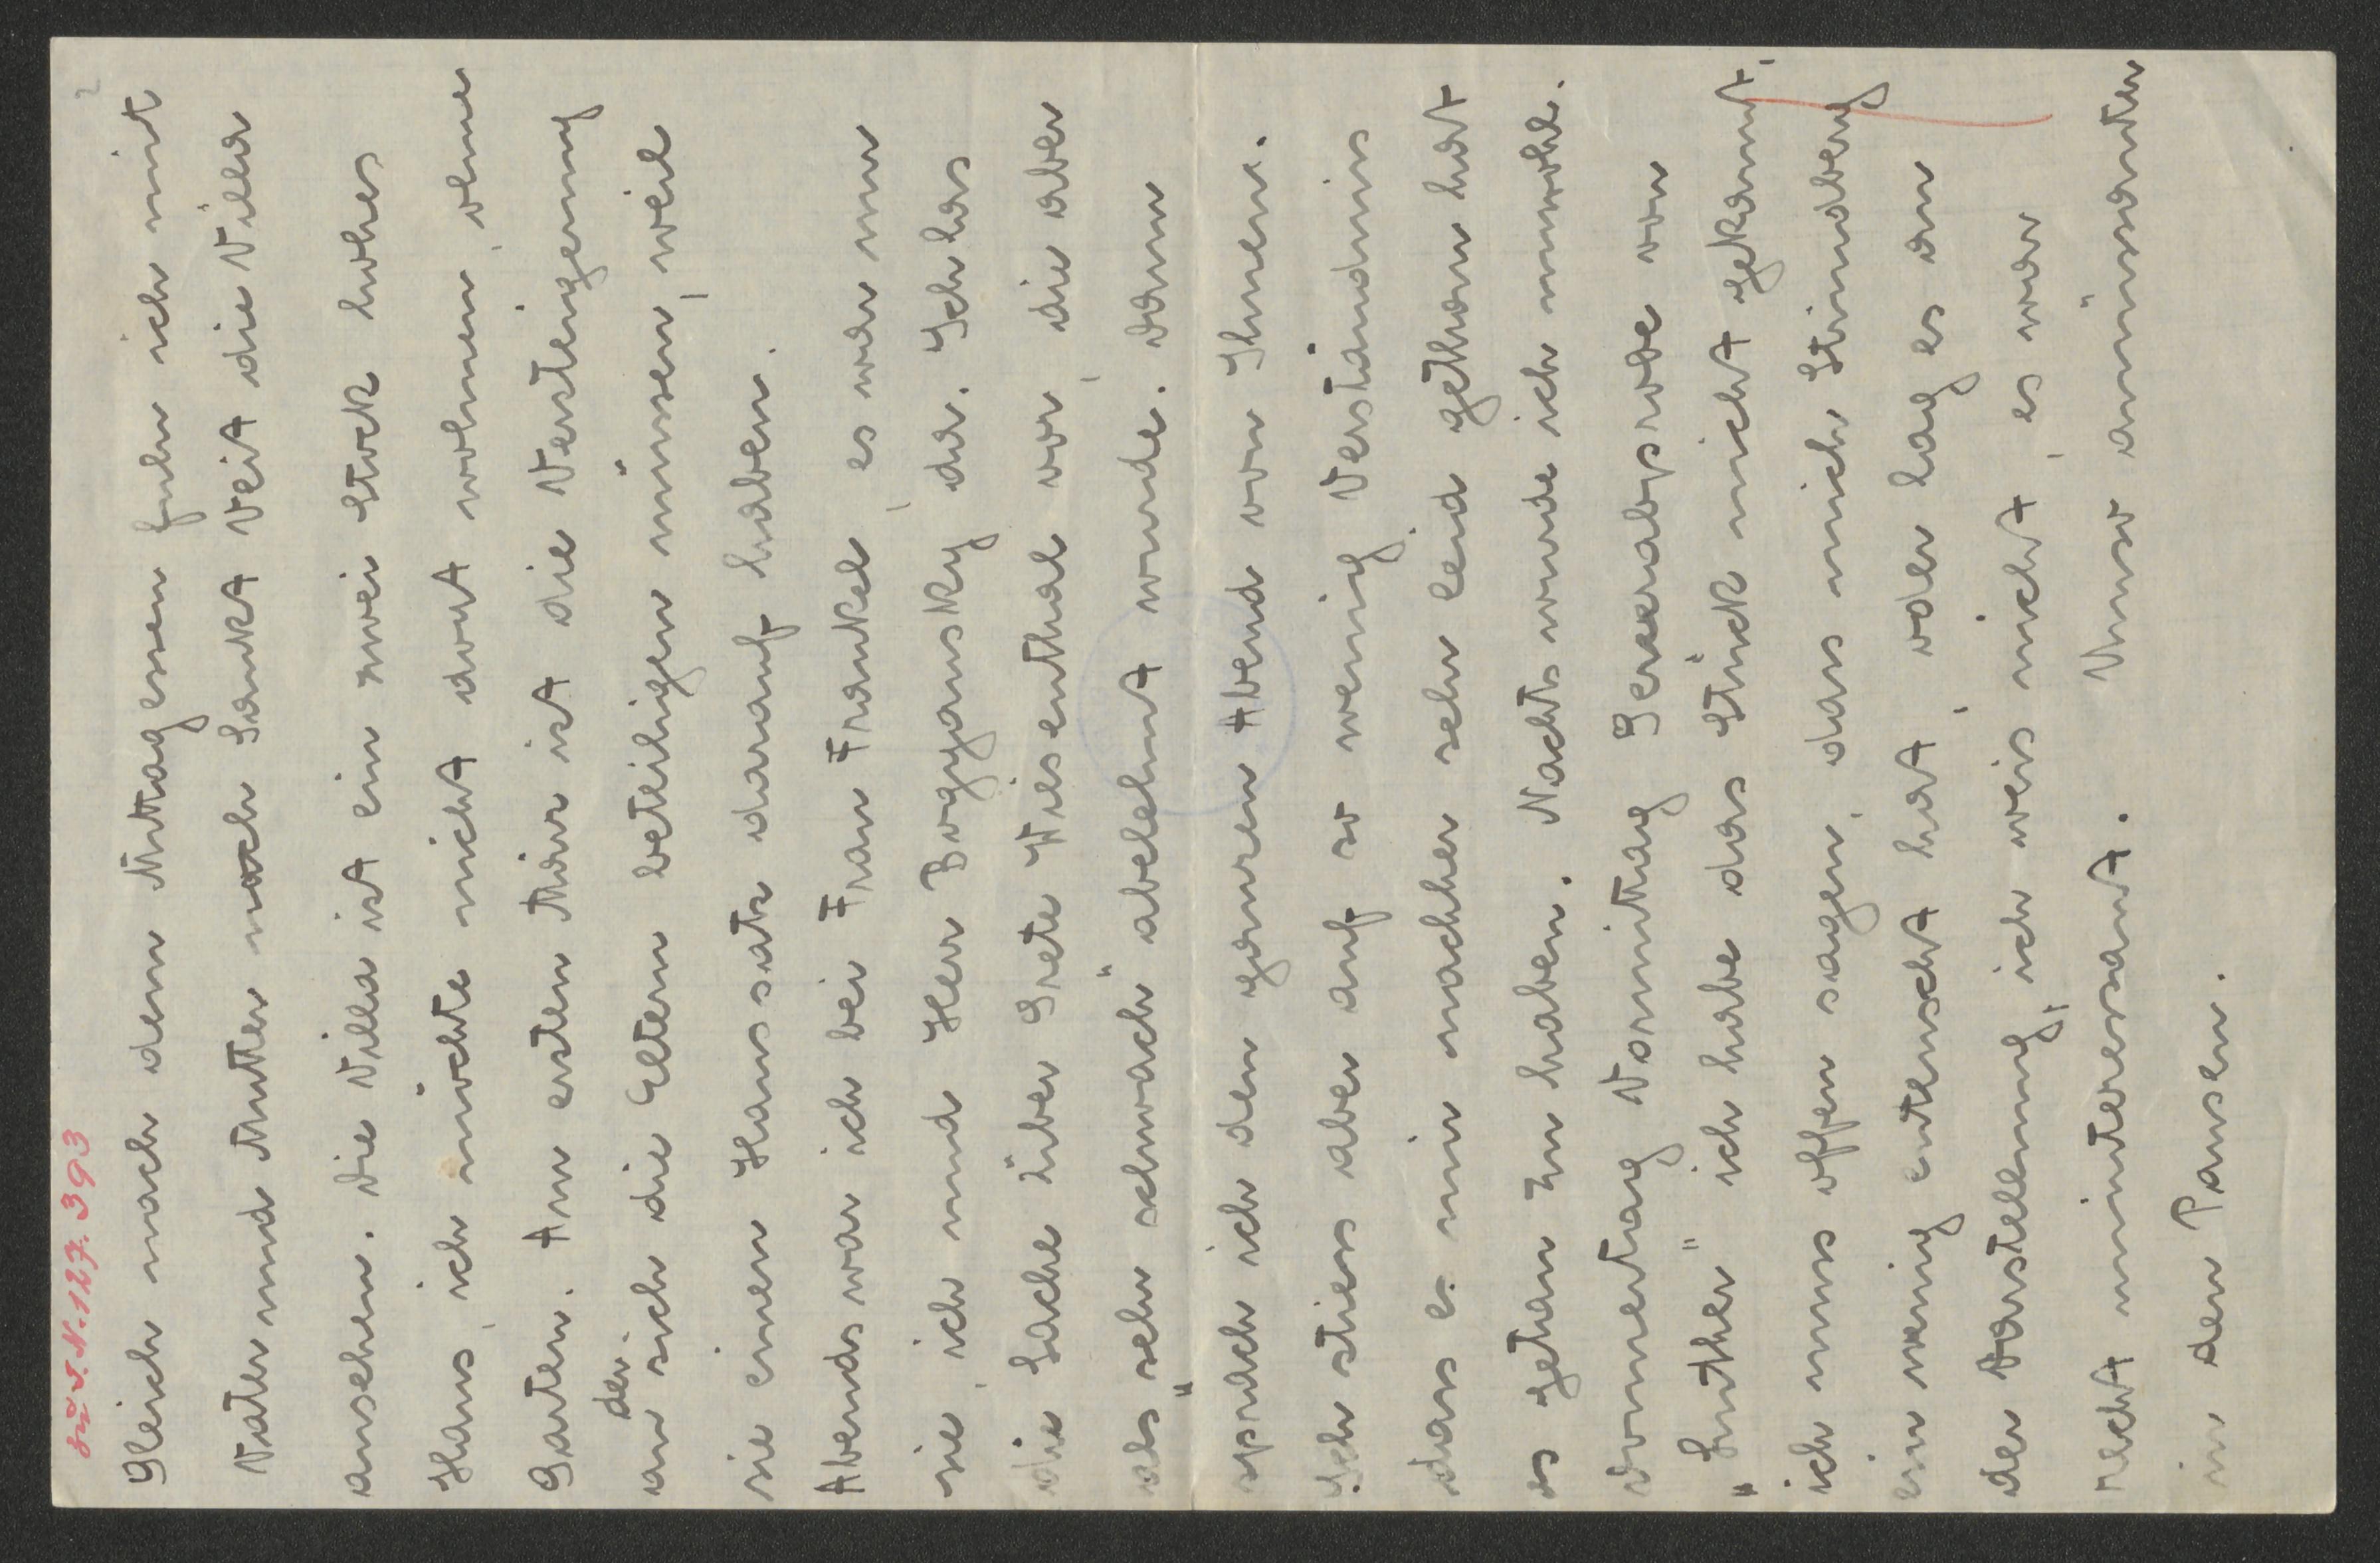 2
Gleich nach dem Mittagessen fuhr ich mit
Vater und Mutter nach Sankt Veit die Villa
ansehen. Die Villa ist ein zwei Stock hohes
Haus, ich möchte nicht dort wohnen, venner
Garten. Am ersten Mär ist die Versteigerung
der
an sich die Eltern beteiligen müssen, weil
sie einen Haussatz darauf haben.
Abends war ich bei Frau Frankel, es war nur
sie, ich und Herr Bogyansky da. Ich las
die Sache über Grete Wiesenthal vor, die aber
als „sehr schwach" abelehnt wurde. Dann
sprach ich den ganzen Abend von Ihnen.
Ich stiess aber auf so wenig Verständnis
dass es mir nachher sehr leid gethan hat
es getan zu haben. Nachts wurde ich unwohl.
Donnertag Vormittag Generalprobe von
„Luther" ich habe das Stück nicht gekannt,
ich muss offen sagen, dass mich Strindberg
ein wenig enttenscht hat, oder lag es an
der Darstellung, ich weis nicht, es war
recht uninteressant. Umso amüsanter
in den Pausen.